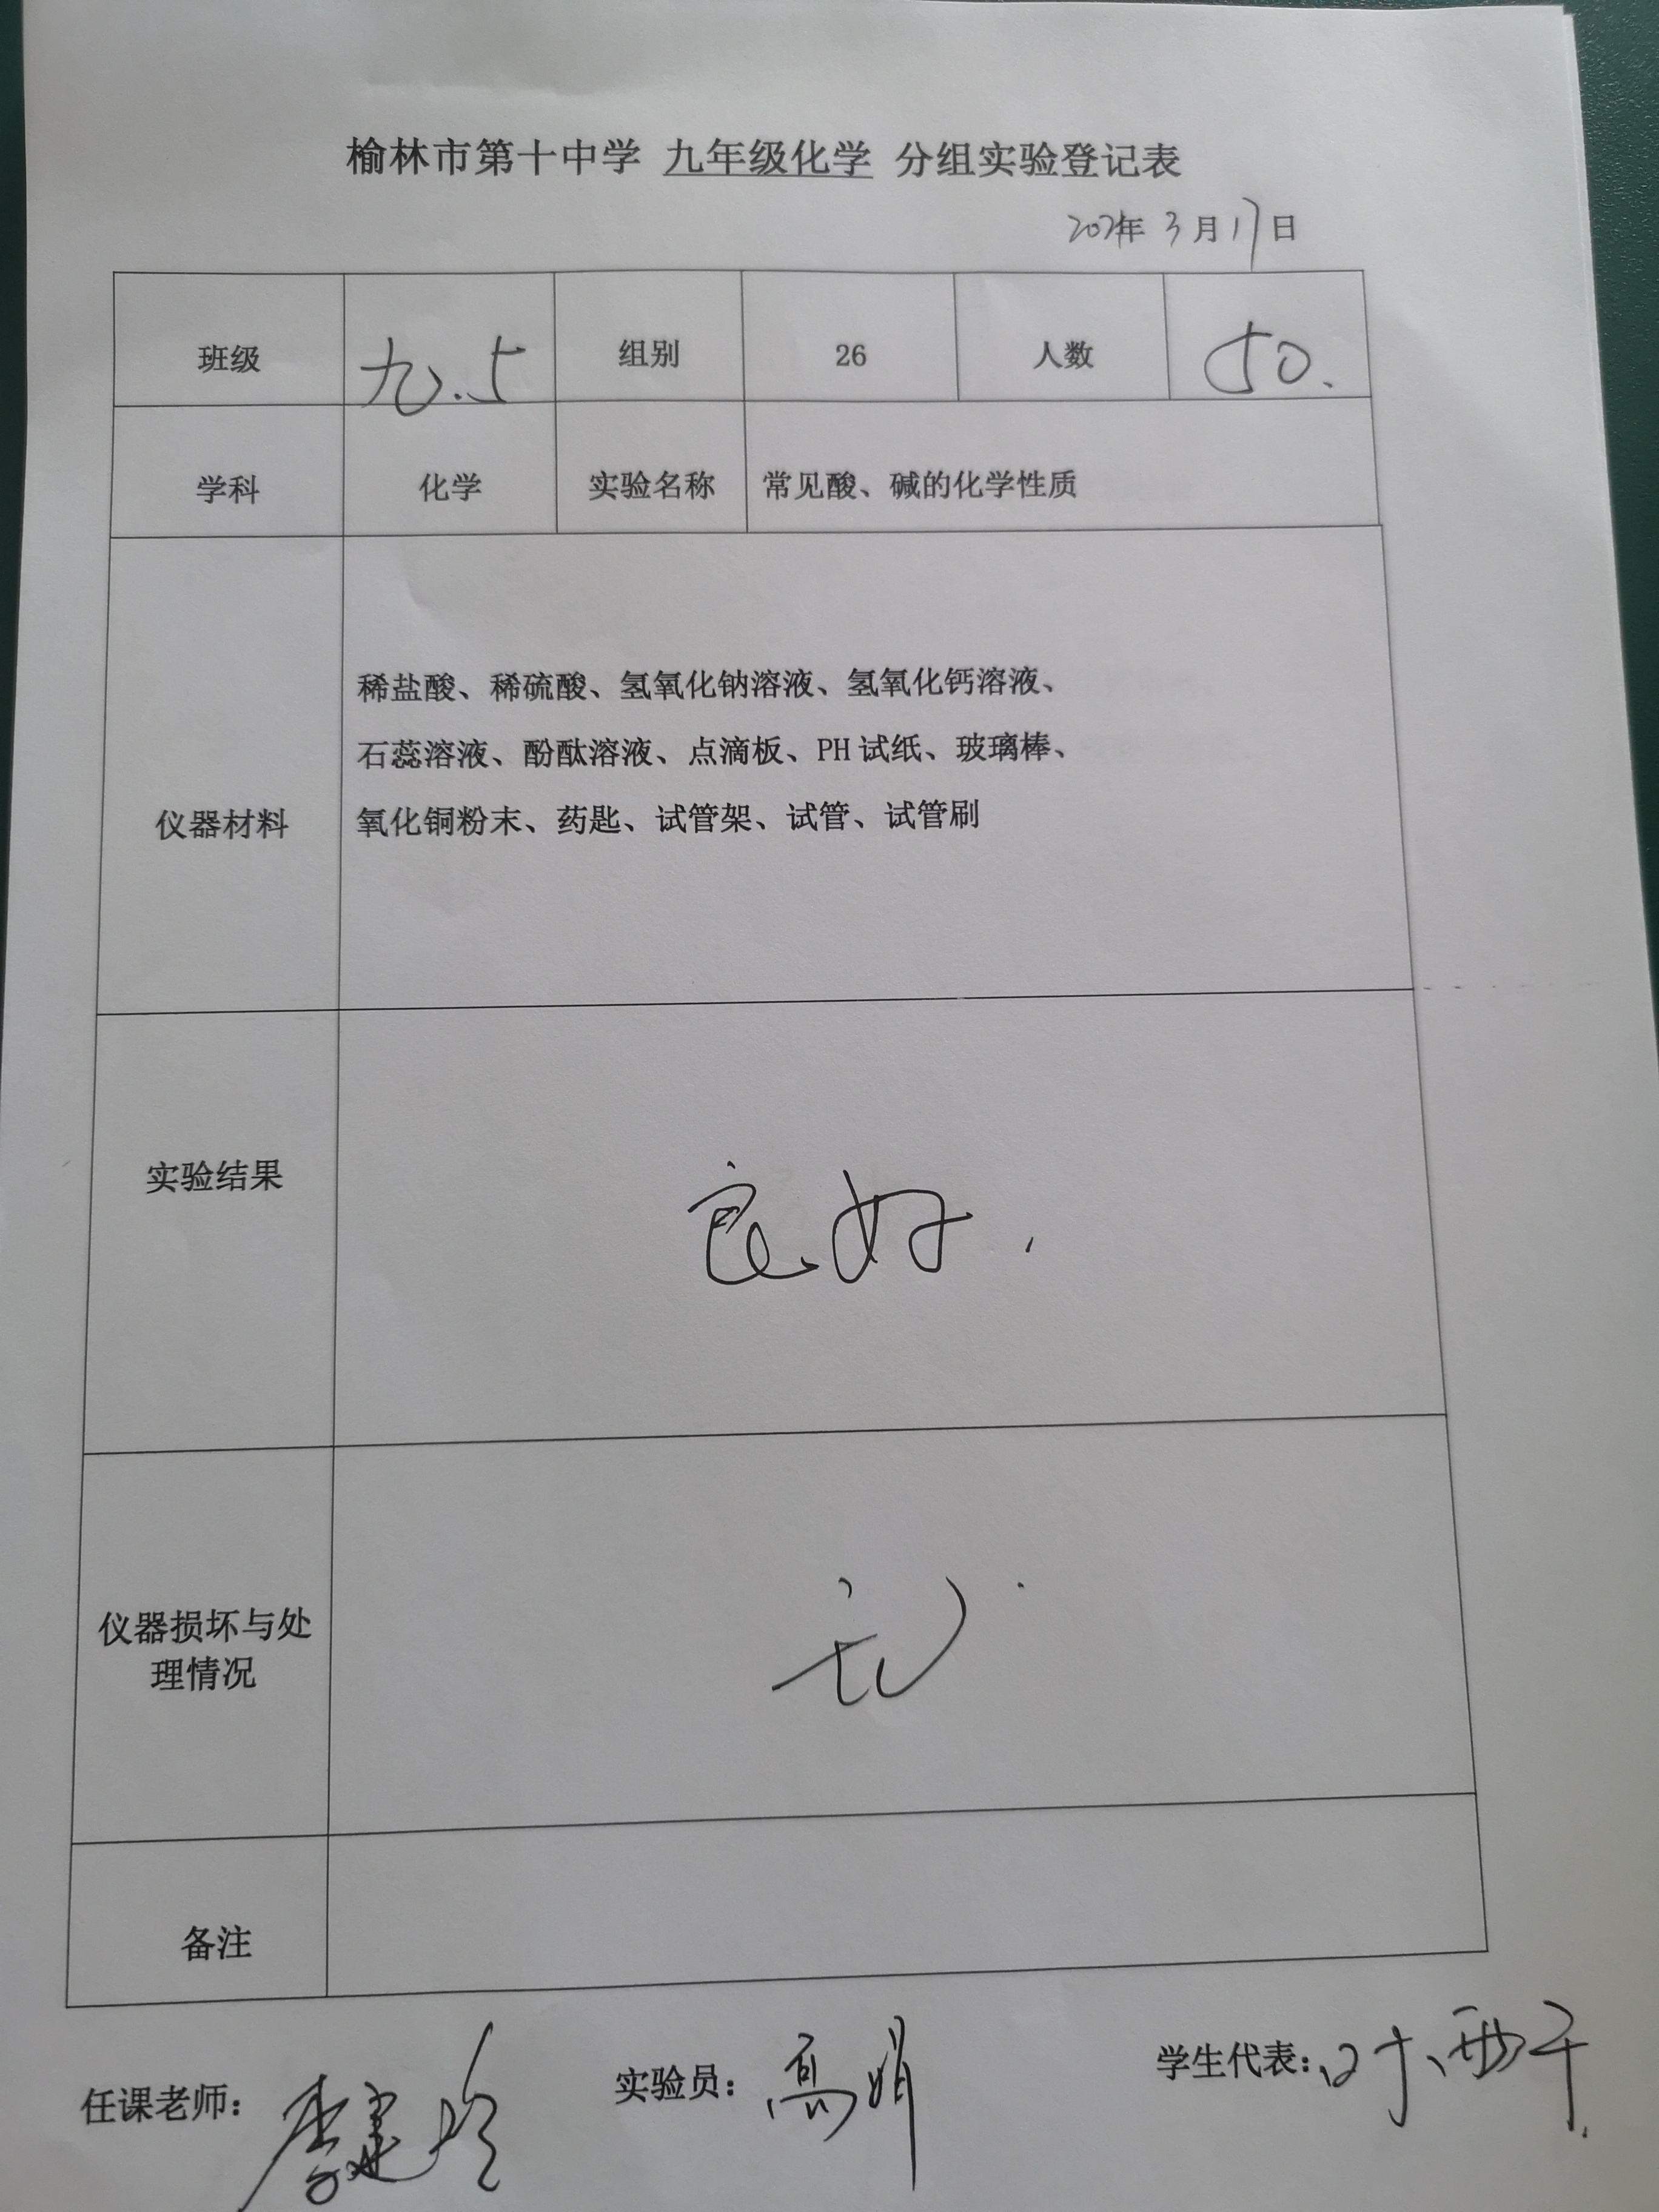 榆林市第十中学 九年级化学 分组实验登记表
年 3 月 17 日
班级 九.5 组别 26 人数 50.
学科 化学 实验名称 常见酸、碱的化学性质
稀盐酸、稀硫酸、氢氧化钠溶液、氢氧化钙溶液、
石蕊溶液、酚酞溶液、点滴板、PH 试纸、玻璃棒、
仪器材料
氧化铜粉末、药匙、试管架、试管、试管刷
实验结果 良好.
仪器损坏与处
理情况
无.
备注
任课老师： 实验员：高娟 学生代表：